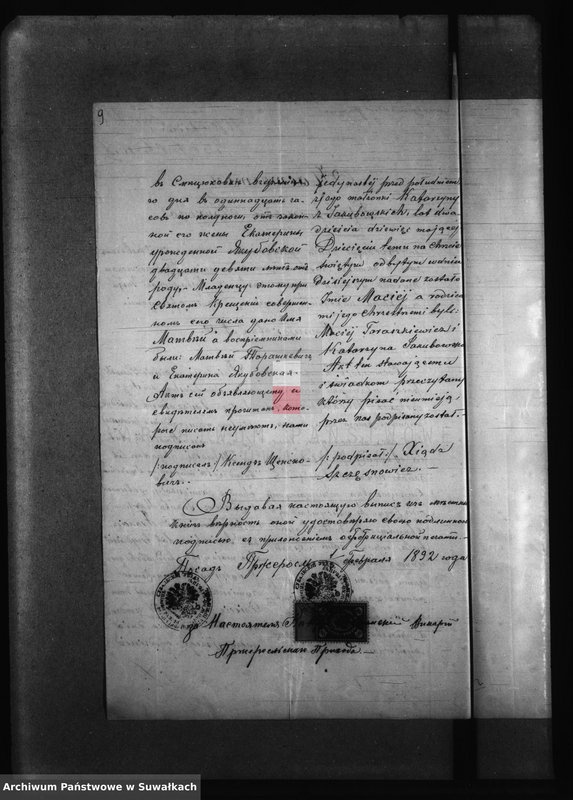 9
въ Сты­цюховъ вчерашня-
го дня въ одиннадцать ча-
совъ по полудни, отъ закон-
ной его жены Екатерины
урожденной Якубовской
двадцати девяти лѣтъ отъ
роду. Младенцу этому при
святомъ Крещеніи совершен-
номъ его числа дано имя
Матвѣй а воспріемниками
были: Матвѣй Тарашкевичъ
и Екатерина Якубовская.
Актъ сей объявляющему и
свидѣтелямъ прочитанъ, кото-
рые писать неумѣютъ, нами
подписанъ
/:подписалъ:/ Ксендзъ Щенсно-
вичъ.
przed południem
z jego małżonki Katarzyny
z Jakubowskich, lat dwa-
dzieścia dziewięć mającej
Dziecięciu temu na Chrzcie
świętym odbytym w dniu
dzisiejszym nadane zostało
Imie Maciej a rodzica-
mi jego Chrzestnemi byli:
Maciej Taraszkiewicz i
Katarzyna Jakubowska
Akt ten stawającemu
i świadkom przeczytany
którzy pisać nieumieją
przez nas podpisany został.
/:podpisał:/ Xiądz
Szczęsnowicz.
Выдавая настоящую выпись изъ метрич.
книгъ вѣрность оной удостовѣряю своею подлинною
подписью, съ приложеніемъ оффиціальной печати.
Посадъ Пржеросль 1 Февраля 1892 года
за Настоятеля Викарій
Пржерослскаго Прихода
Archiwum Państwowe w Suwałkach